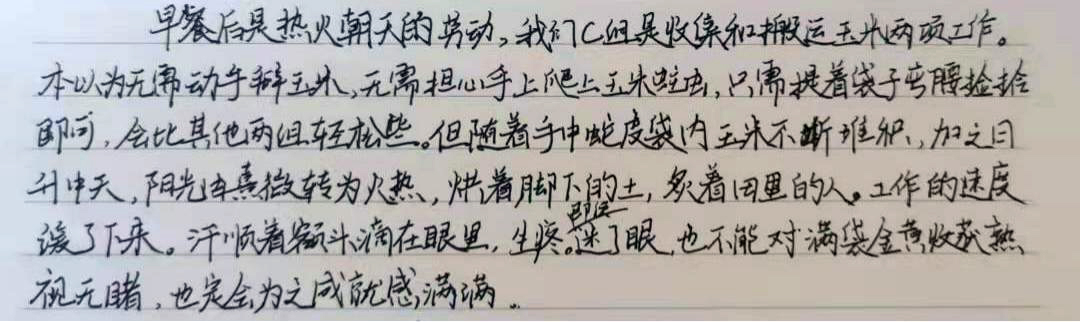 早餐后是热火朝天的劳动，我们C组是收集和搬运玉米两项工作。
本以为无需动手掰玉米，无需担心手上爬上玉米蛀虫，只需提着袋子弯腰捡拾
即可，会比其他两组轻松些。但随着手中蛇皮袋内玉米不断堆积，加之日
升中天，阳光由熹微转为火热，烘着脚下的土，炙着田里的人。工作的速度
缓了下来。汗顺着额头滴在眼里，生疼。即使迷了眼，也不能对满袋金黄收获熟
视无睹，也定会为之成就感满满。